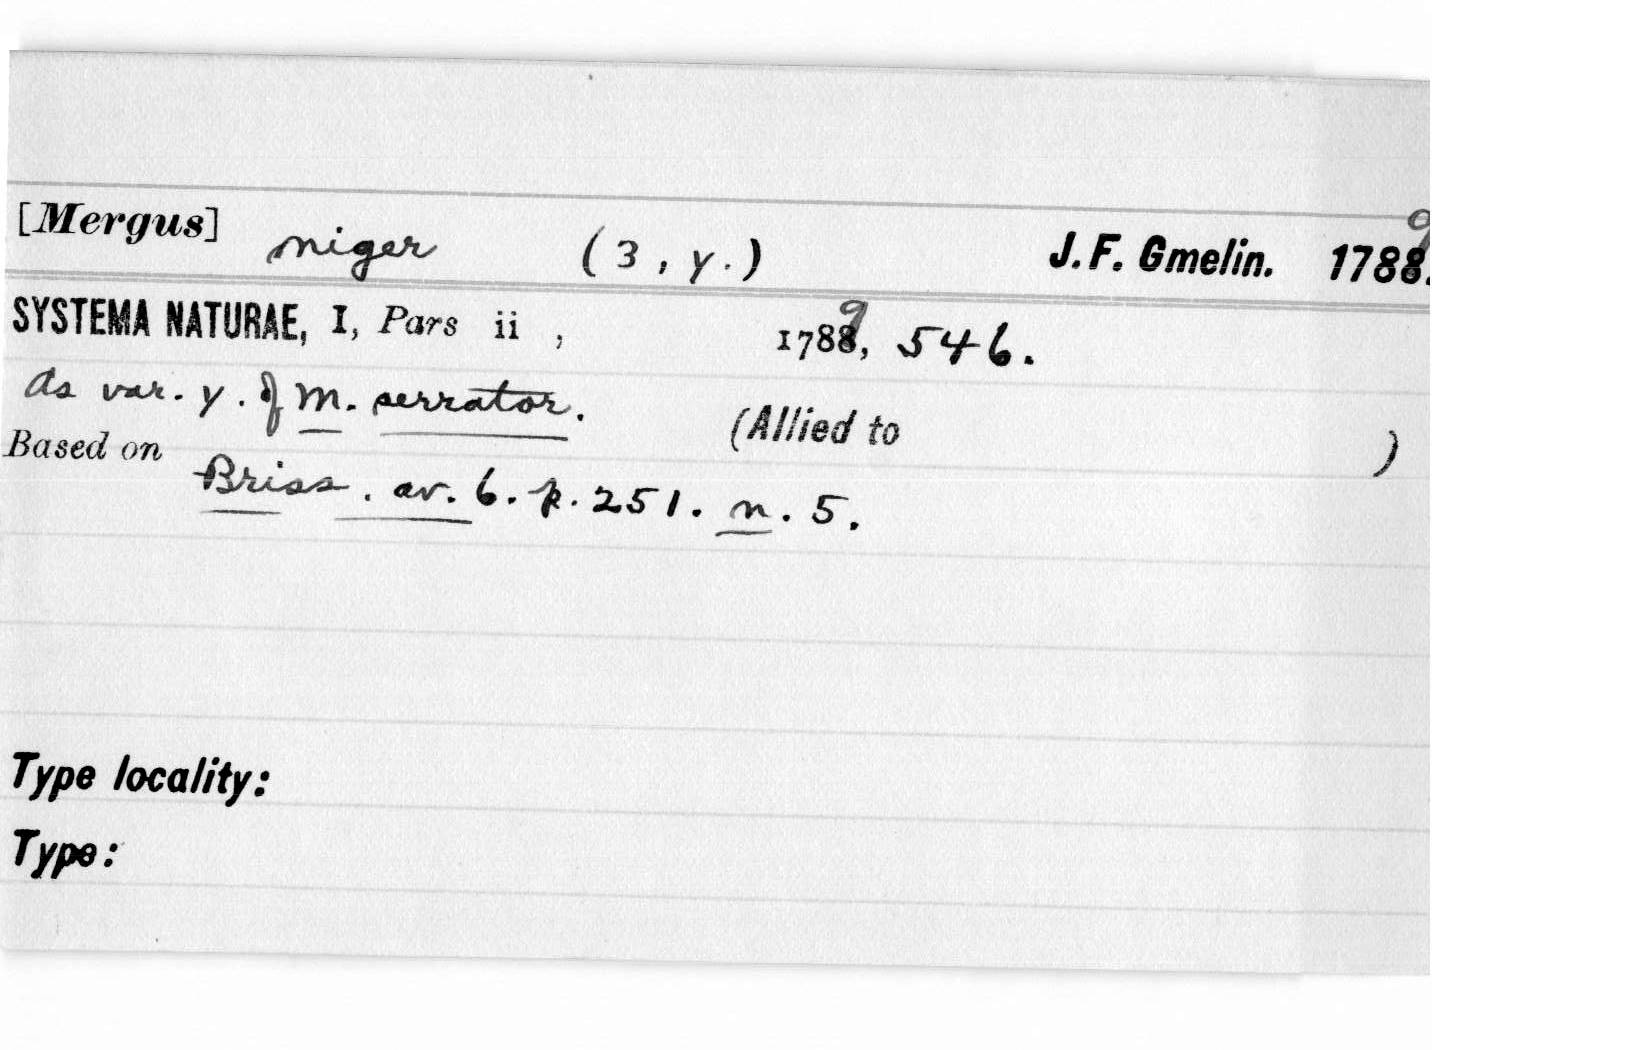 [Mergus] niger (3, γ.) J. F. Gmelin. 1789.
SYSTEMA NATURAE, I, Pars ii , 1789, 546.
As var. γ. of M. serrator. (Allied to )
Based on Briss. av. 6. p. 251. n. 5.
Type locality:
Type: